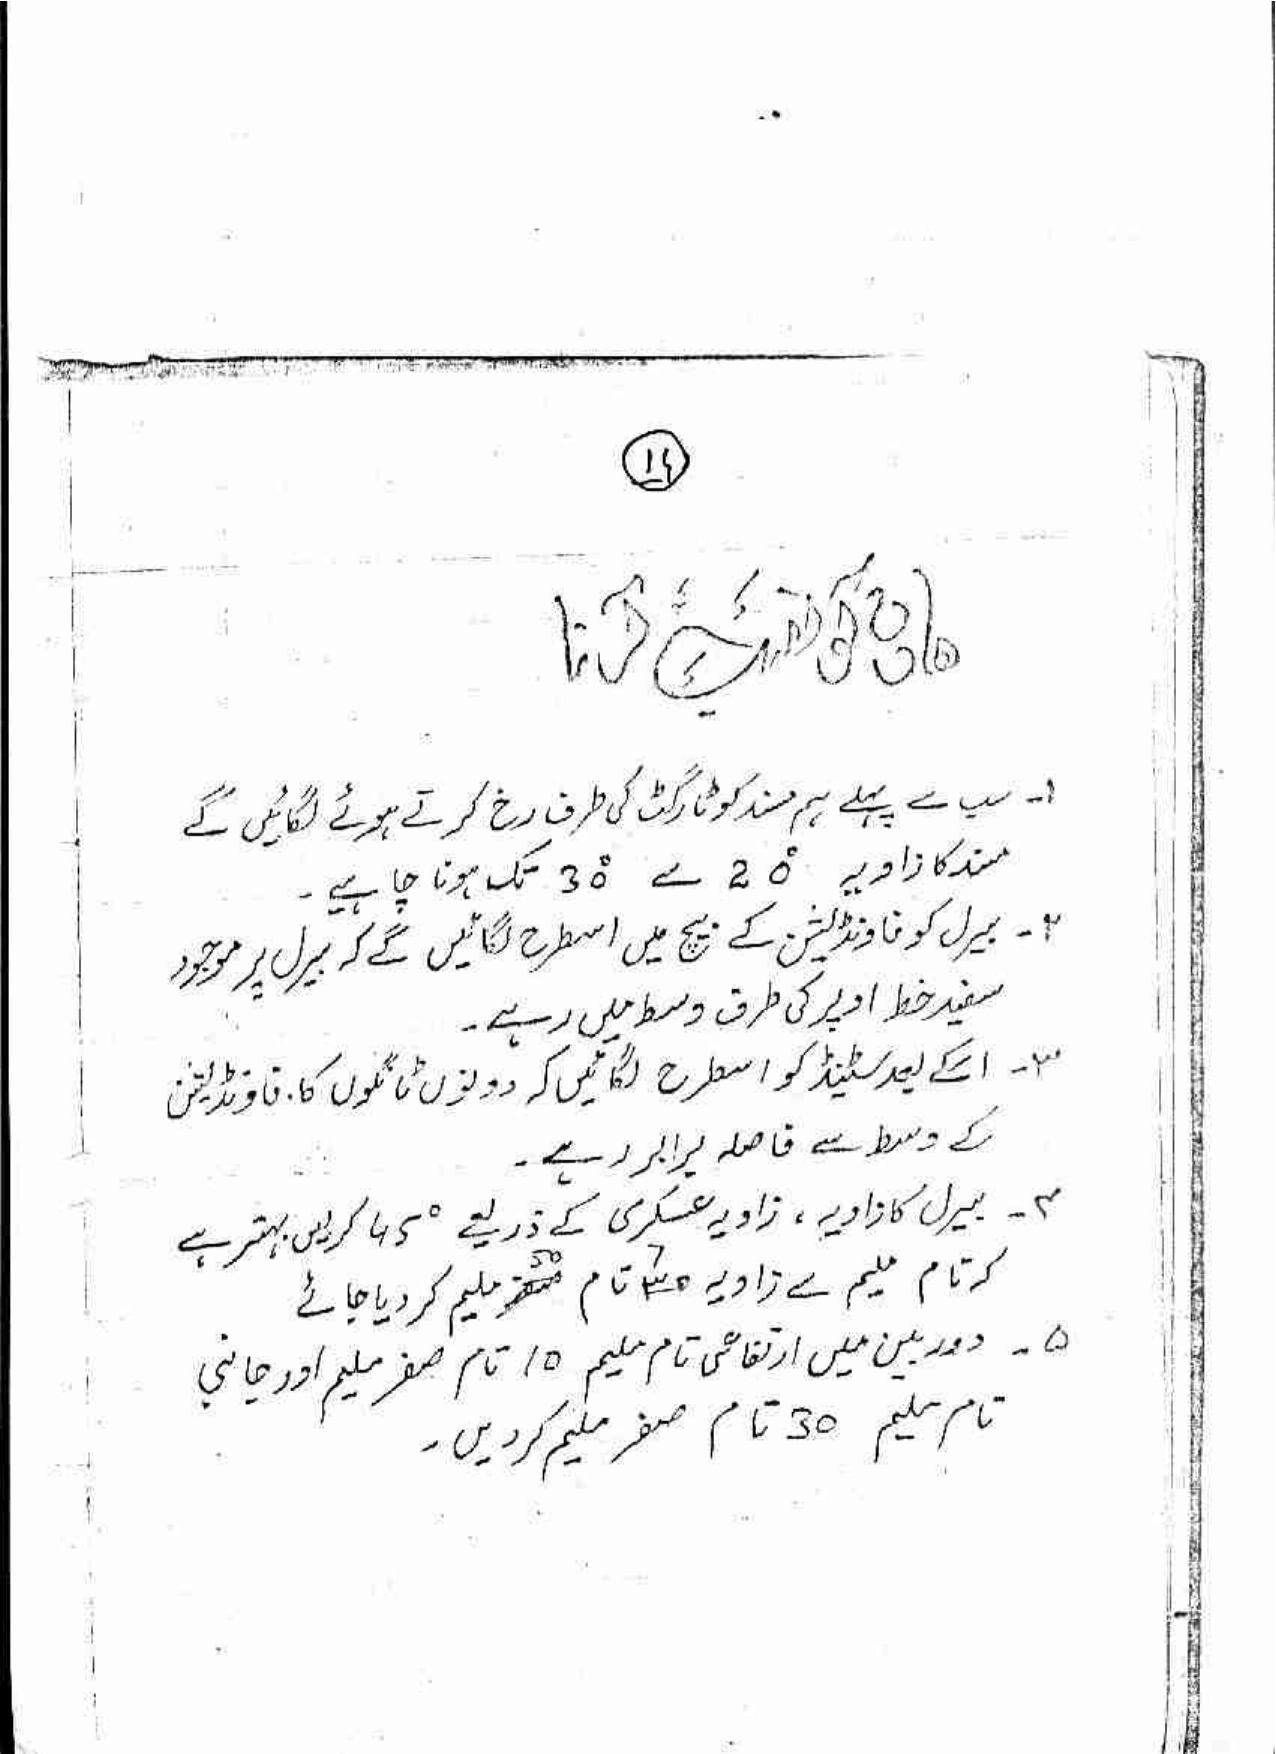 ۱۴
ہاون کو نصب کرنا
۱- سب سے پہلے ہم مسند کو ٹارگٹ کی طرف رخ کرتے ہوئے لگائیں گے
مسند کا زاویہ 20° سے 30° تک ہونا چاہیے۔
۲- بیرل کو فاونڈیشن کے بیچ میں اسطرح لگائیں گے کہ بیرل پر موجود
سفید خط اوپر کی طرف وسط میں رہے۔
۳- اسکے بعد سٹینڈ کو اسطرح لگائیں کہ دونوں ٹانگوں کا فاونڈیشن
کے وسط سے فاصلہ برابر رہے۔
۴- بیرل کا زاویہ، زاویہ عسکری کے ذریعے ۴۵° کریں بہتر ہے
کہ تام ملیم سے زاویہ تام 50 ملیم کر دیا جائے
۵- دوربین میں ارتفاعی تام ملیم 10 تام صفر ملیم اور جانبی
تام ملیم 30 تام صفر ملیم کر دیں۔